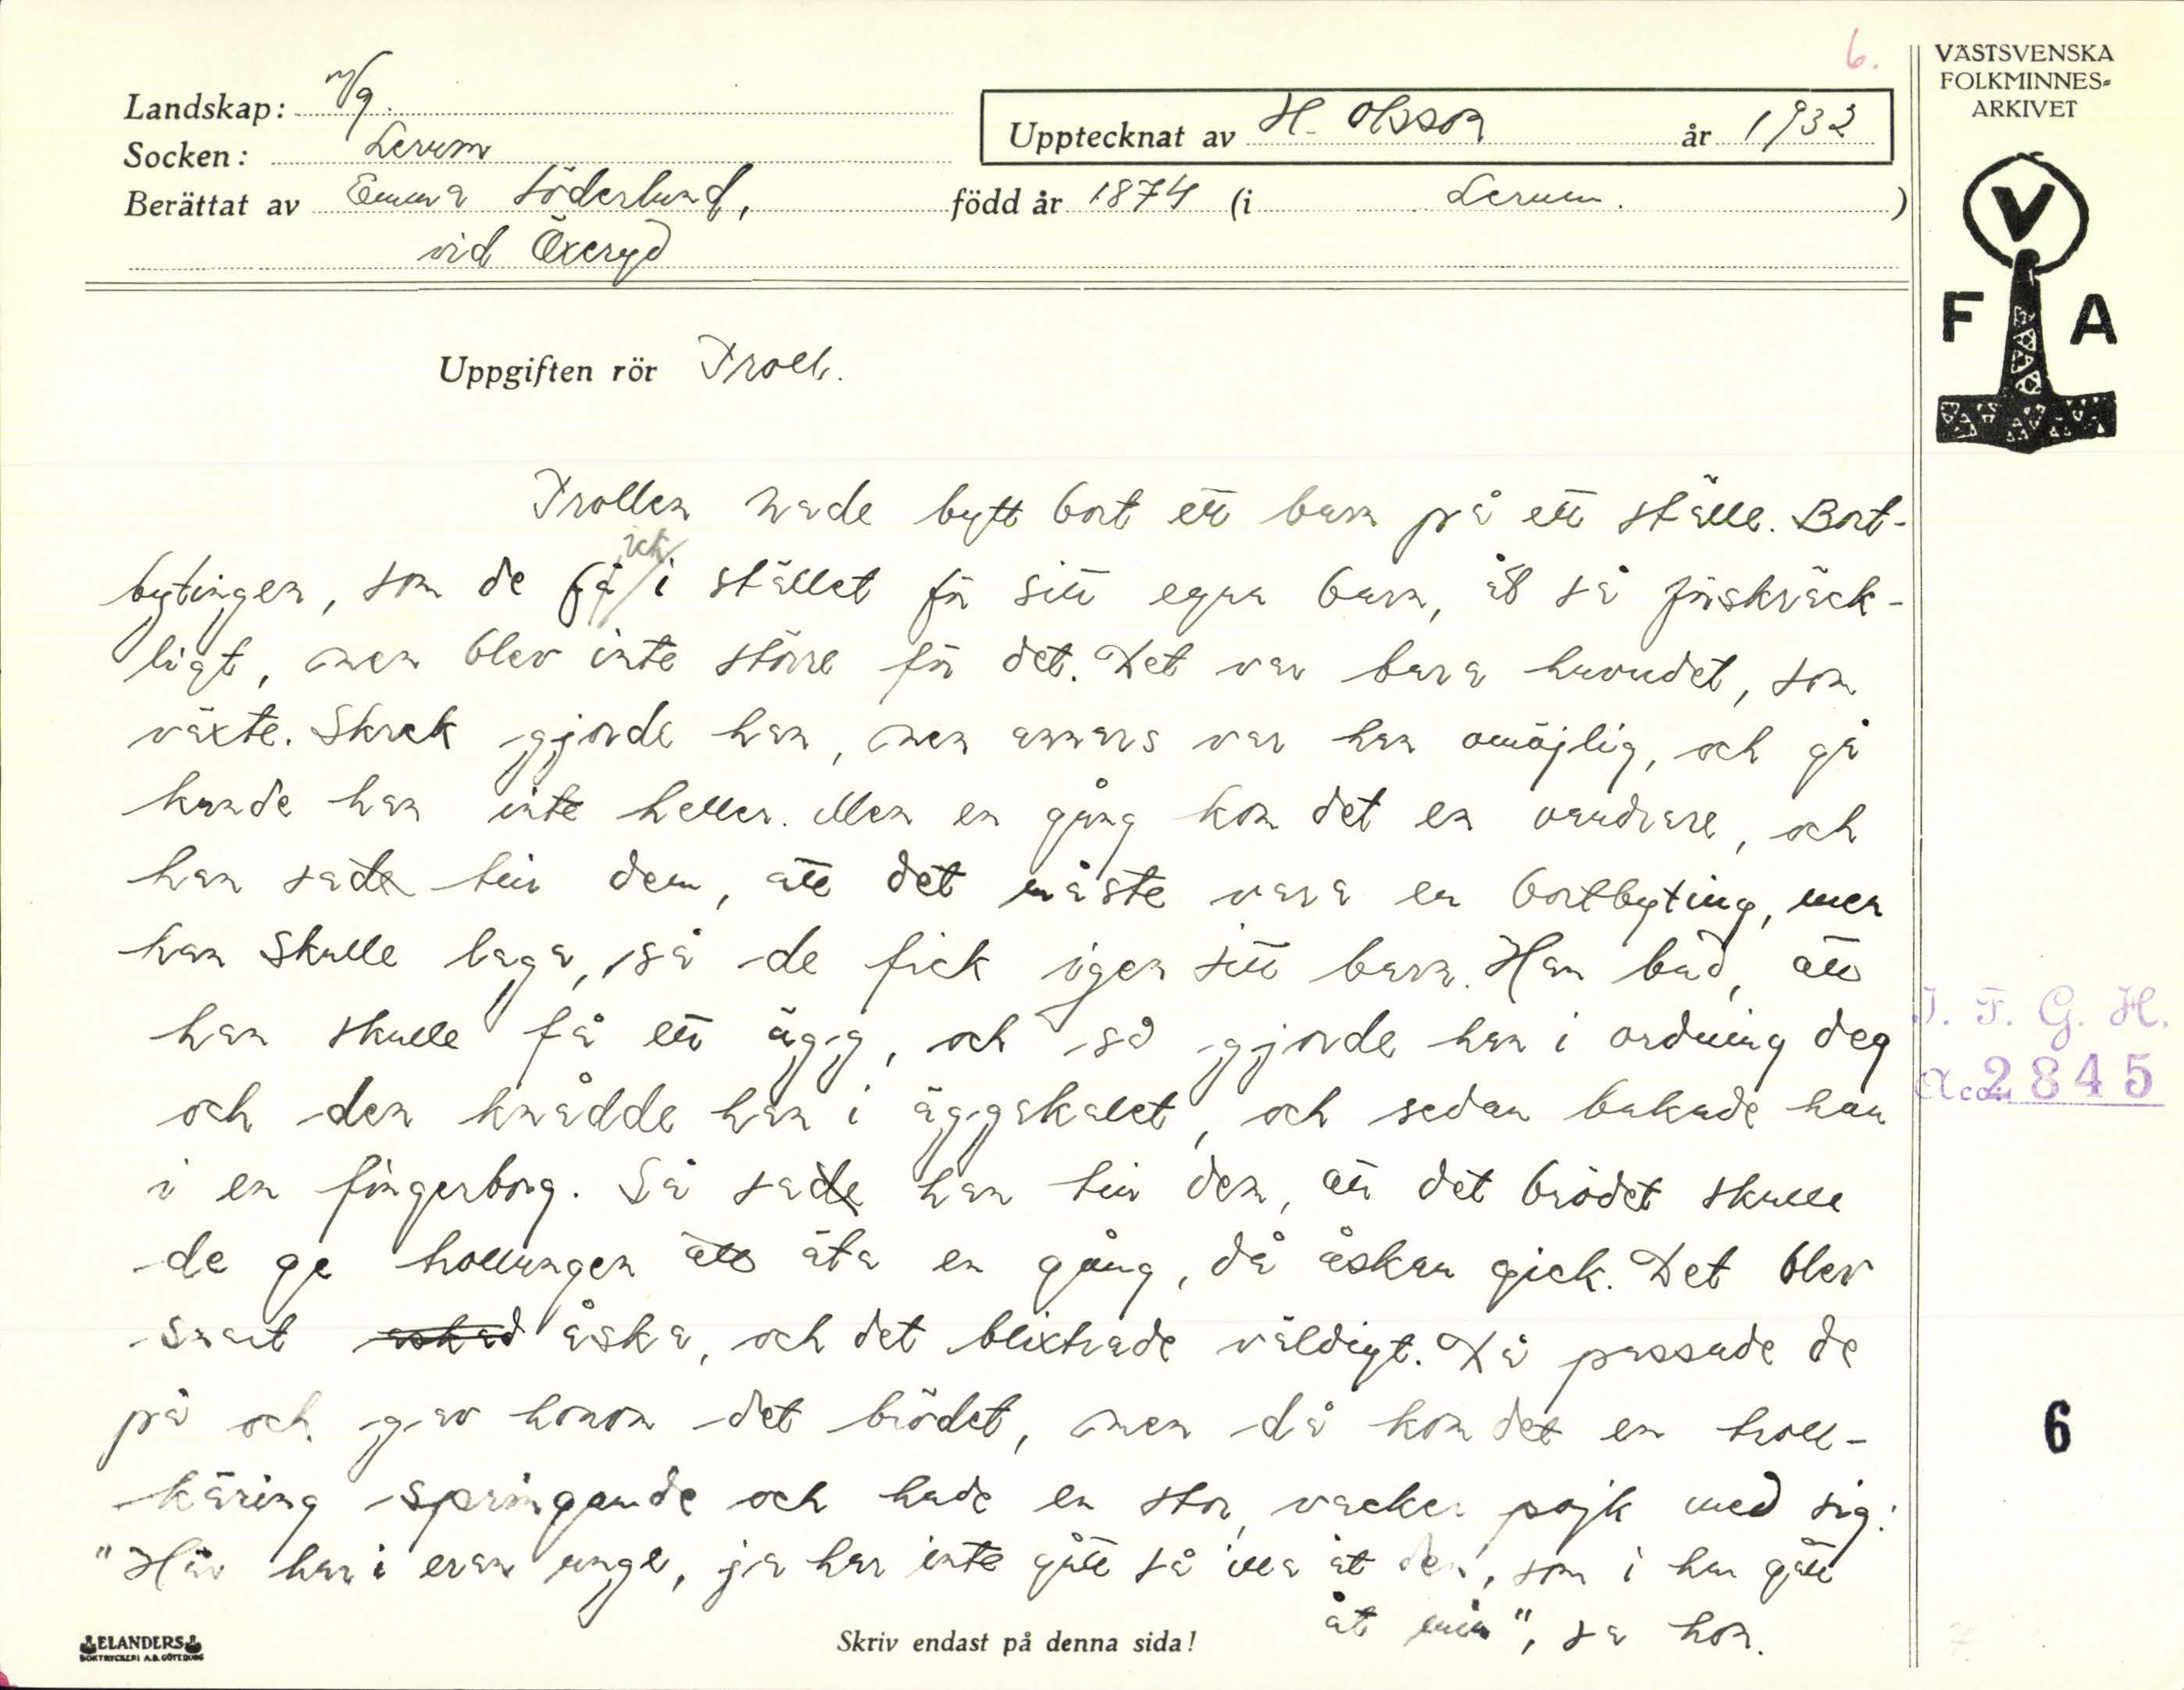 6.
VÄSTSVENSKA
FOLKMINNES-
ARKIVET
Landskap: Vg.
Socken: Lerum
Upptecknat av H. Olsson år 1932
Berättat av Emma Söderlund, född år 1874 (i Lerum.)
vid Öxeryd
V
F A
Uppgiften rör Troll.
Trollen hade bytt bort ett barn på ett ställe. Bort-
bytingen, som de fick i stället för sitt egna barn, åt så förskräck-
ligt, men blev inte större för det. Det var bara huvudet, som
växte. Skrek gjorde han, men annars var han omöjlig, och gå
kunde han inte heller. Men en gång kom det en vandrare, och
han sade till dem, att det måste vara en bortbyting, men
han skulle laga, så de fick igen sitt barn. Han bad, att
han skulle få ett ägg, och så gjorde han i ordning deg
och den knådde han i äggskalet, och sedan bakade han
i en fingerborg. Så sade han till dem, att det brödet skulle
de ge trollungen att äta en gång, då åskan gick. Det blev
snart åska, och det blixtrade väldigt. Då passade de
på och gav honom det brödet, men då kom det en troll-
käring springande och hade en stor, vacker pojk med sig:
"Här har i eran unge, ja har inte gått så illa åt den, som i har gått
åt min", sa hon.
I. F. G. H.
Acc. 2845
6
ELANDERS
BOKTRYCKERI A.B. GÖTEBORG
Skriv endast på denna sida!